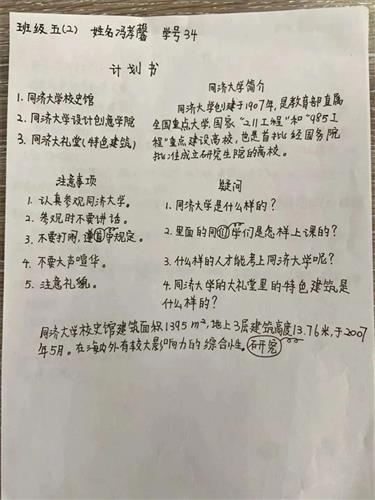 班级五(2) 姓名冯孝馨 学号34
计划书
1. 同济大学校史馆
2. 同济大学设计创意学院
3. 同济大礼堂(特色建筑)
同济大学简介
同济大学创建于1907年,是教育部直属
全国重点大学,国家“211工程”和“985工
程”重点建设高校,也是首批经国务院
批准成立研究生院的高校。
注意事项
1. 认真参观同济大学。
2. 参观时不要讲话。
3. 不要打闹,遵守规定。
4. 不要大声喧华。
5. 注意礼貌。
疑问
1. 同济大学是什么样的?
2. 里面的同学们是怎样上课的?
3. 什么样的人才能考上同济大学呢?
4. 同济大学的大礼堂里的特色建筑是
什么样的?
同济大学校史馆建筑面积1395m²,地上3层建筑高度13.76米,于2007
年5月。在海内外有较大影响力的综合性。研究